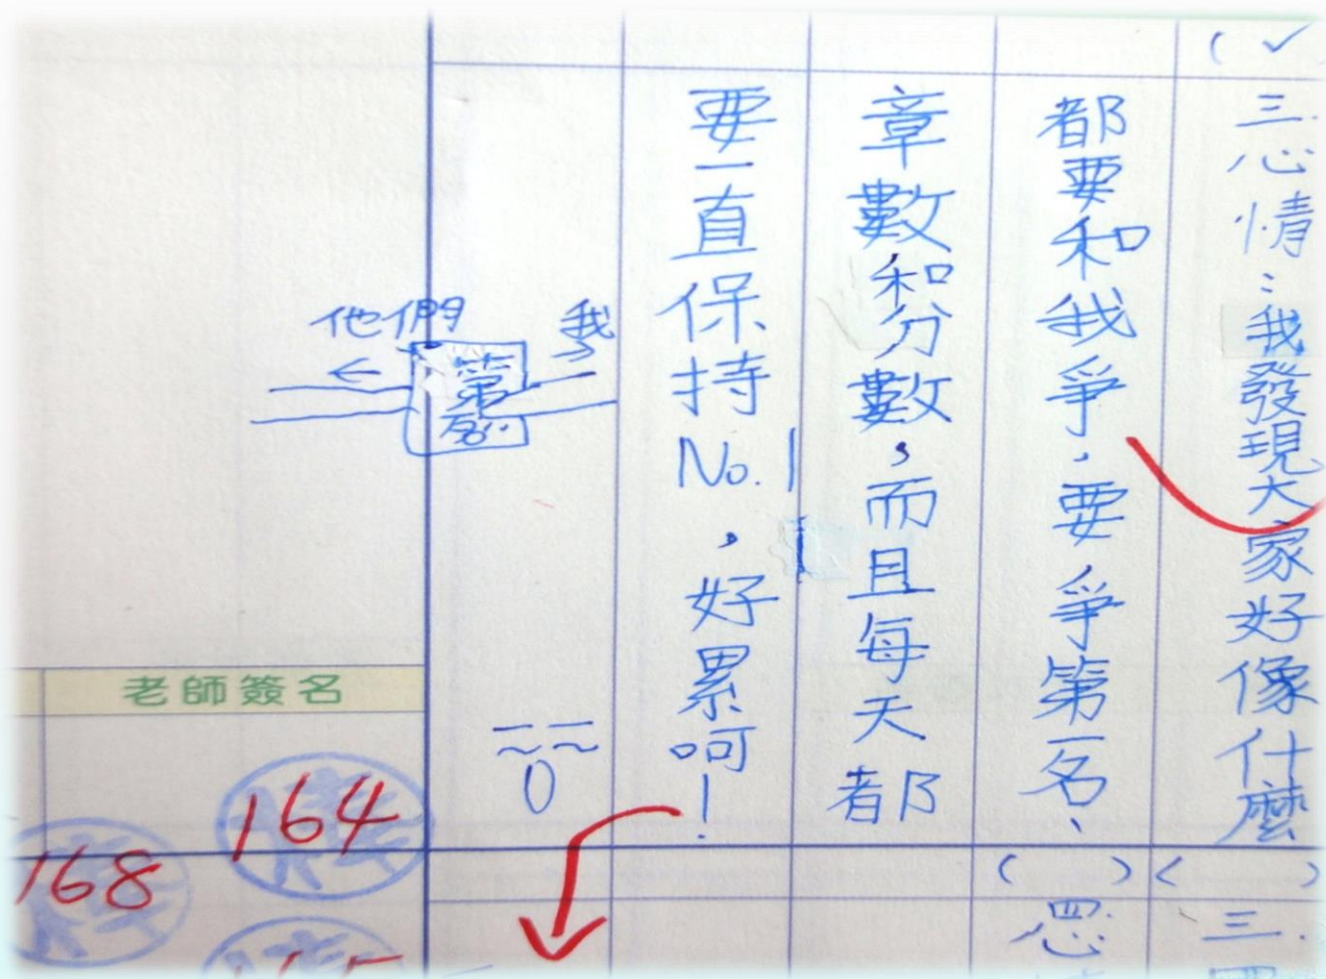 三.心情：我發現大家好像什麼
都要和我爭，要爭第一名、
章數和分數，而且每天都
要一直保持No.1，好累呵！
我
第一名
他們
老師簽名
164
168
三.